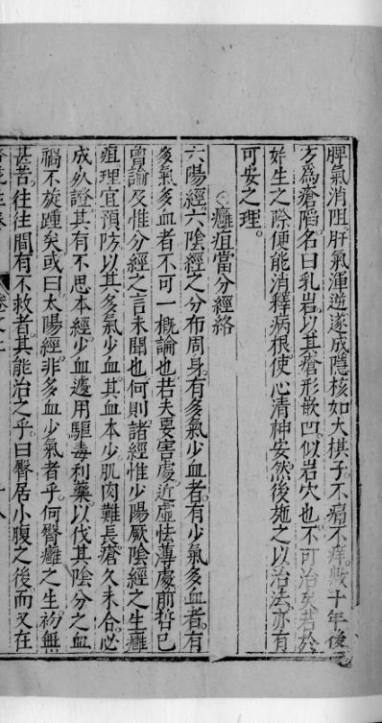 脾氣消阻肝氣渾逆遂成隱核如大棋子不痛不痒數十年後
方為瘡䧟名曰乳岩以其瘡形嵌凹似岩穴也不可治矣若於
始生之除便能消釋病根使心清神安然後施之以治法亦有
可安之理。
癰疽當分經絡
六陽經。六陰經之分布周身。有多氣少血者。有少氣多血者。有
多氣多血者不可一槪論也若夫要害處近虛怯薄處前哲已
曾論及惟分經之言未聞也何則諸經惟少陽厥陰經之生癰
疽理宜預防以其多氣少血其血本少肌肉難長瘡久未合必
成必證其有不思本經少血遽用驅毒利藥以伐其陰分之血
禍不旋踵矣或曰太陽經非多血少氣者乎。何臀癰之生初無
甚苦。往往間有不救者其能治之乎。曰臀居小腹之後。而又在
卷之二